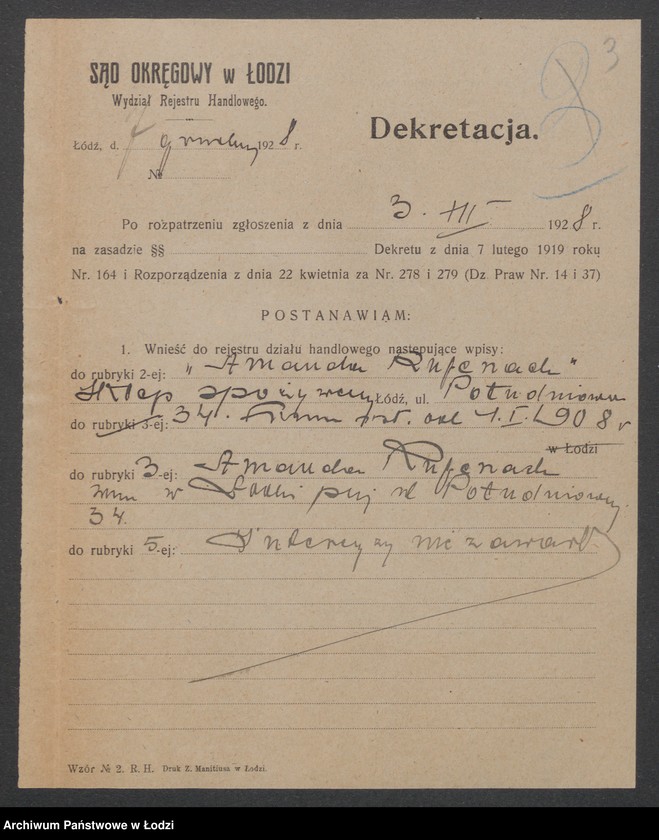 3
SĄD OKRĘGOWY w ŁODZI
Wydział Rejestru Handlowego.
Dekretacja.
Łódź, d. 7 grudnia 1928 r.
№
Po rozpatrzeniu zgłoszenia z dnia 3. XII 1928 r.
na zasadzie §§ Dekretu z dnia 7 lutego 1919 roku
Nr. 164 i Rozporządzenia z dnia 22 kwietnia za Nr. 278 i 279 (Dz. Praw Nr. 14 i 37)
POSTANAWIAM:
1. Wnieść do rejestru działu handlowego następujące wpisy:
do rubryki 2-ej: "Amanda Rufenach"
Sklep spożywczy Łódź, ul. Południowa
do rubryki 3-ej: 34. Firma istn. od 1.I.1908 r
w Łodzi
do rubryki 3-ej: Amanda Rufenach
zam w Łodzi przy ul Południowej
34.
do rubryki 5-ej: Intercyzy nie zawarł
Wzór № 2. R. H. Druk Z. Manitiusa w Łodzi.
Archiwum Państwowe w Łodzi